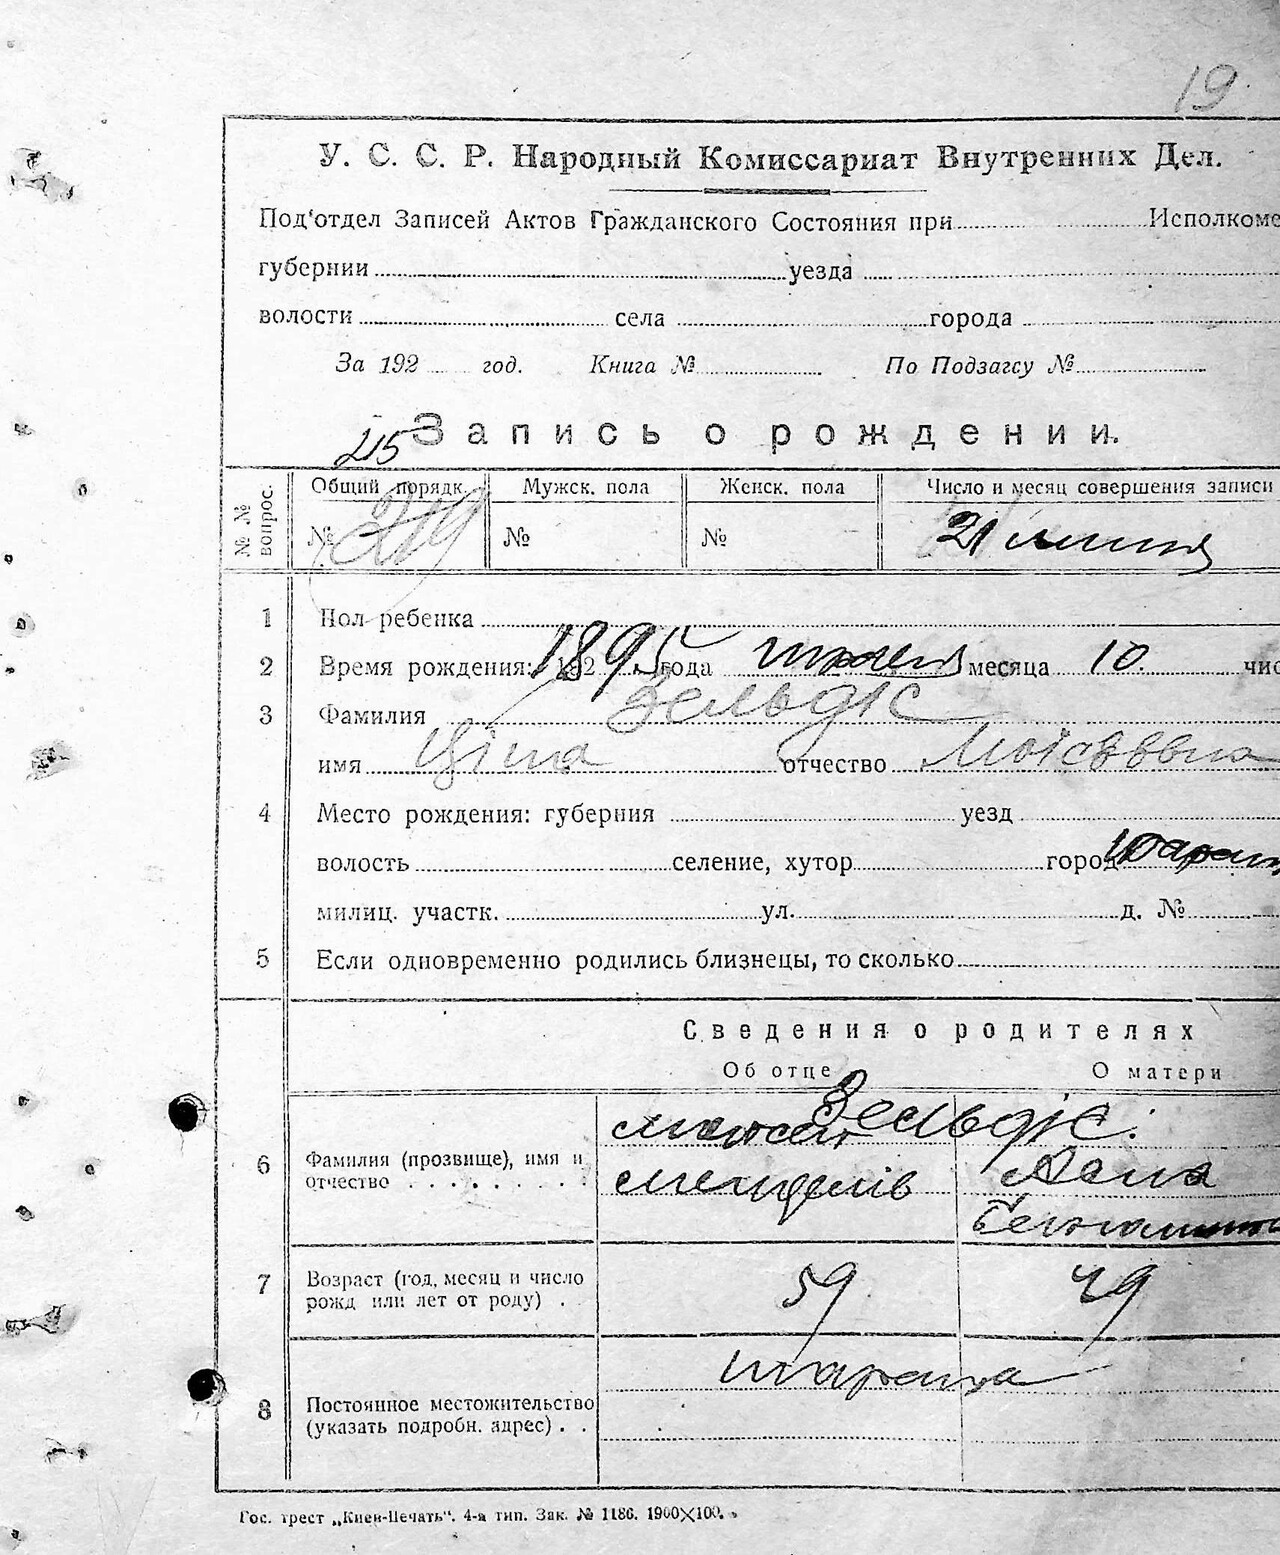 19
У. С. С. Р. Народный Комиссариат Внутренних Дел.
Под'отдел Записей Актов Гражданского Состояния при Исполкоме
губернии уезда
волости села города
За 192 год. Книга № По Подзагсу №
215 Запись о рождении.
№ № вопрос. Общий порядк. Мужск. пола Женск. пола Число и месяц совершения записи
№ 219 № № 21 липня
1 Пол ребенка
2 Время рождения: 1895 года месяца 10 чис
3 Фамилия Зельдіс
имя Ціпа отчество Мойсеевна
4 Место рождения: губерния уезд
волость селение, хутор город
милиц. участк. ул. д. №
5 Если одновременно родились близнецы, то сколько
Сведения о родителях
Об отце О матери
Зельдіс.
6 Фамилия (прозвище), имя и
отчество
7 Возраст (год, месяц и число 59 49
рожд или лет от роду) .
Тараща
8 Постоянное местожительство
(указать подробн. адрес) . .
Гос. трест „Киев-Печать“. 4-я тип. Зак. № 1186. 1900×100.